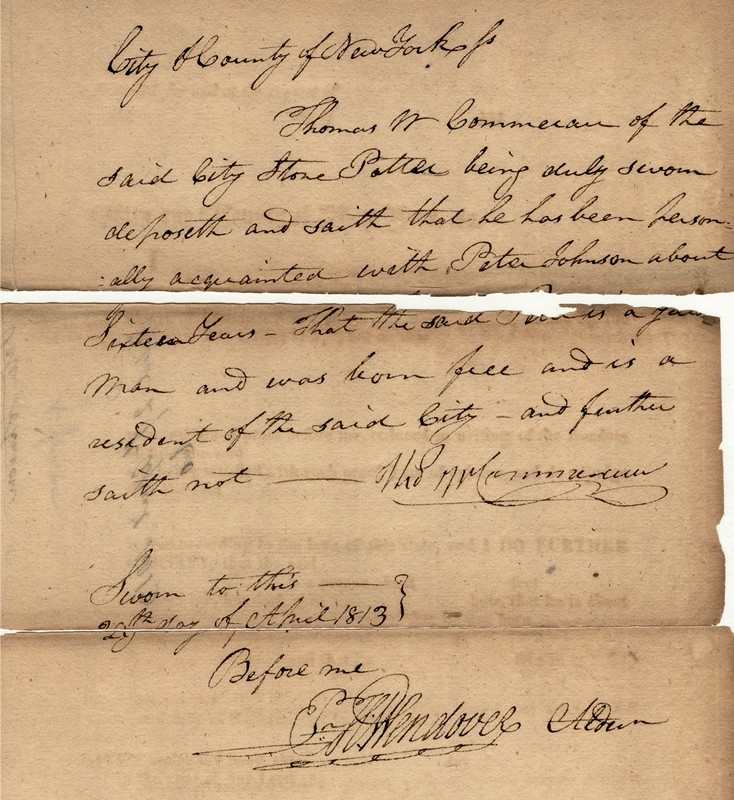 City & County of New York ss
Thomas W Commerau of the
said City Stone Potter being duly sworn
deposeth and saith that he has been person=
=ally acquainted with Peter Johnson about
Sixteen Years – That the said Peter is a
Man and was born free and is a
resident of the said City – and further
saith not —— Thos W Commerau
Sworn to this ——
29th day of April 1813 }
Before me
P. H. Wendover Aldrn
I DO FURTHER